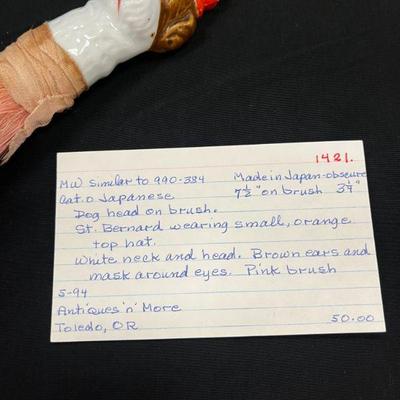 1421.
MW Similar to 990-384 Made in Japan-obscure
Cat. o Japanese 7½" on brush 3¼"
Dog head on brush.
St. Bernard wearing small, orange
top hat.
White neck and head. Brown ears and
mask around eyes. Pink brush
5-94
Antiques 'n' More
Toledo, OR 50.00